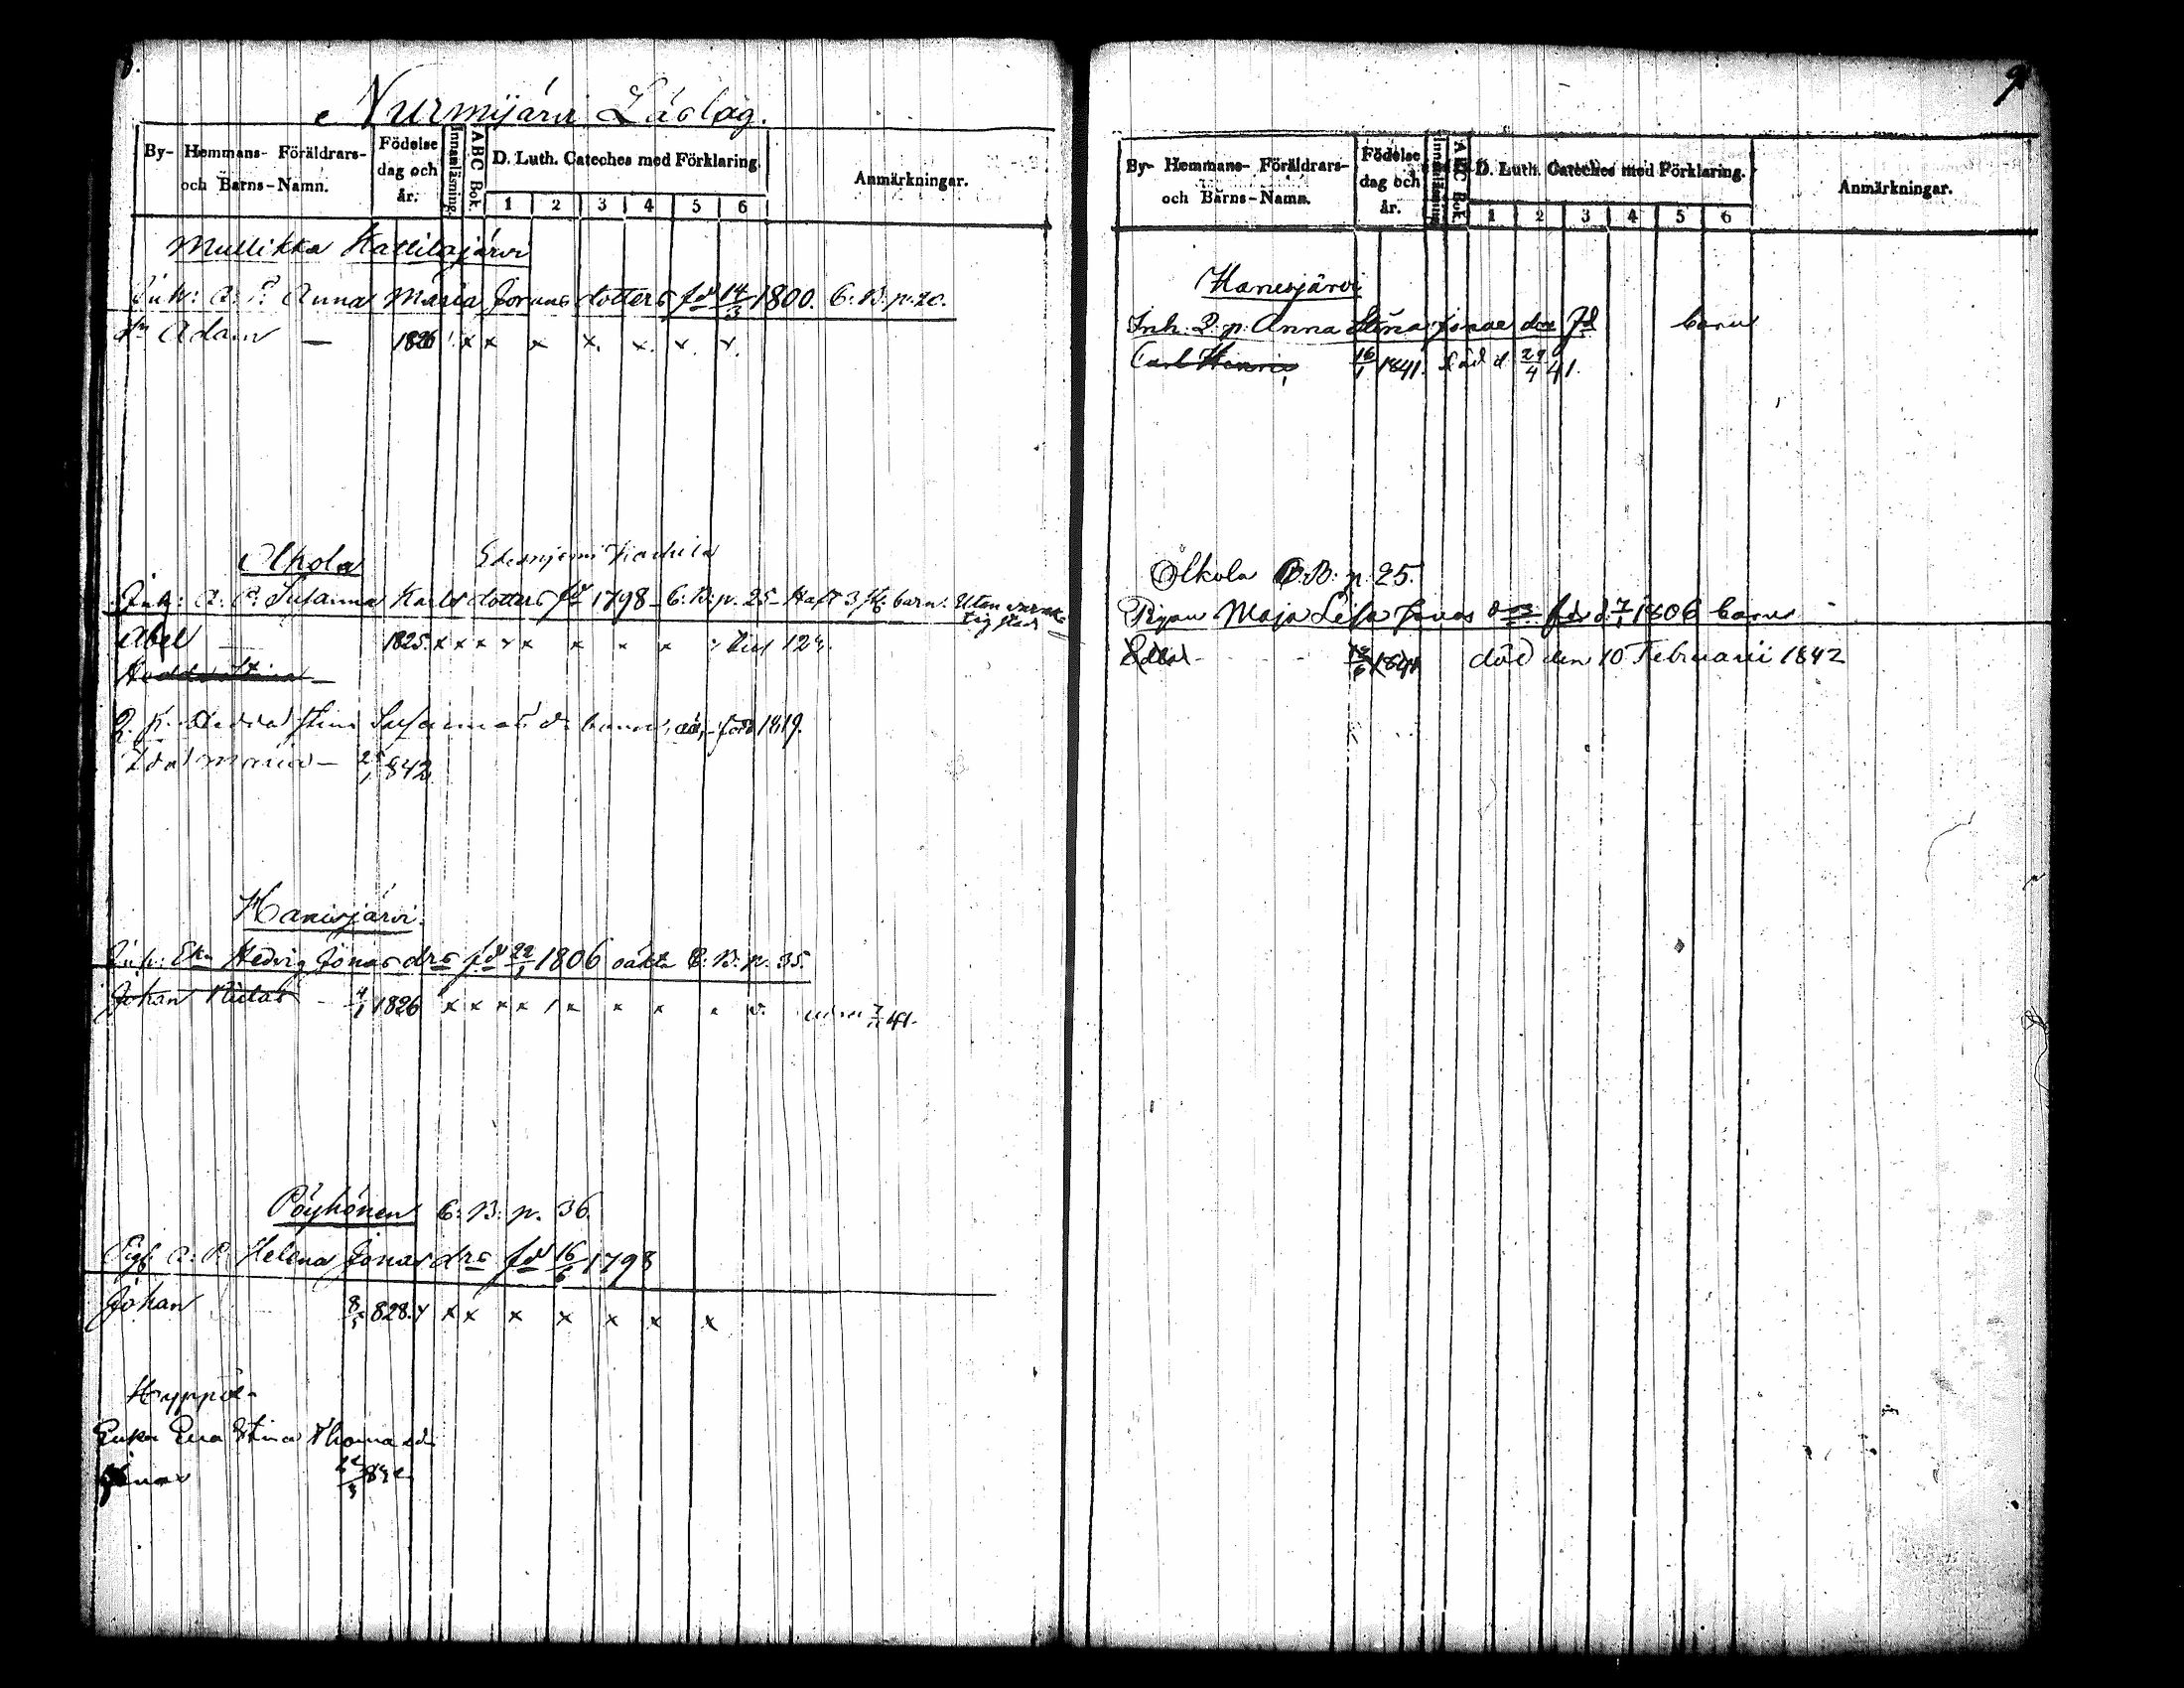 Nurmijärvi Läslag.
By- Hemmans- Föräldrars- och Barns-Namn.
Födelse dag och år.
Innanläsning.
ABC Bok.
D. Luth. Cateches med Förklaring.
1 2 3 4 5 6
Anmärkningar.
Mullikka Kattilajärvi
Inh: Q: P: Anna Maria Jonæ dotters fd 14/3 1800. C: B: p. 20.
Adam — 1826 x x x x. x. x. x.
Olkola
Inh: Q: P: Susanna Karls dotters fd 1798 - C: B: p. 25 - Haft 3 barn. Utan
Abel 1825. x x x x x x x x
Hedda Stina —
Q. p. Hedda Stina Susannas d. barn, född 1819.
Ida Maria — 842.
Hanisjärvi.
Inh: Hedvig Jonas drs fd 22/1 1806 oäkta C: B: p. 35.
Johan - 4/1 1826 x x x x x x x 41.
Pöyhönen C: B: p. 36.
Q: P: Helena Jonas drs fd 16/6 1798
Johan 828. x x x x x x x
Hyppöe-
Enkan Eva Stina Thomæ dr
Jonas
9
By- Hemmans- Föräldrars- och Barns-Namn.
Födelse dag och år.
Innanläsning
ABC Bok.
D. Luth. Cateches med Förklaring.
1 2 3 4 5 6
Anmärkningar.
Hanesjärvi
Inh. Q. p. Anna Stina Jonæ drs fd barn
Carl Henric 16/1 1841. död d 29/4 41.
Olkola C: B: p. 25.
Pigan Maja Lisa Jonas drs fdd d. 7/1 1806 barn
1841 död den 10 Februarii 1842